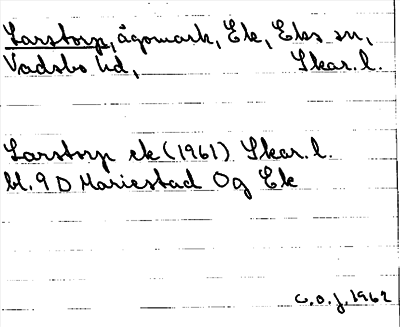 Larstorp, ägomark, Ek, Eks sn,
Vadsbo hd, Skar. l.
Larstorp ek (1961) Skar. l.
bl. 9 D Mariestad Og Ek
C.O.J. 1962